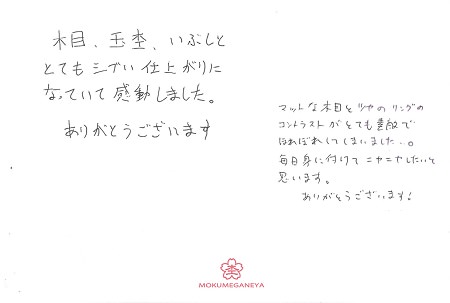 木目、玉杢、いぶしと
とてもシブい仕上がりに
なっていて感動しました。
ありがとうございます
マットな木目とツヤのリングの
コントラストがとても素敵で
ほれぼれしてしまいました。
毎日身に付けてニヤニヤしたいと
思います。
ありがとうございます!
杢
MOKUMEGANEYA